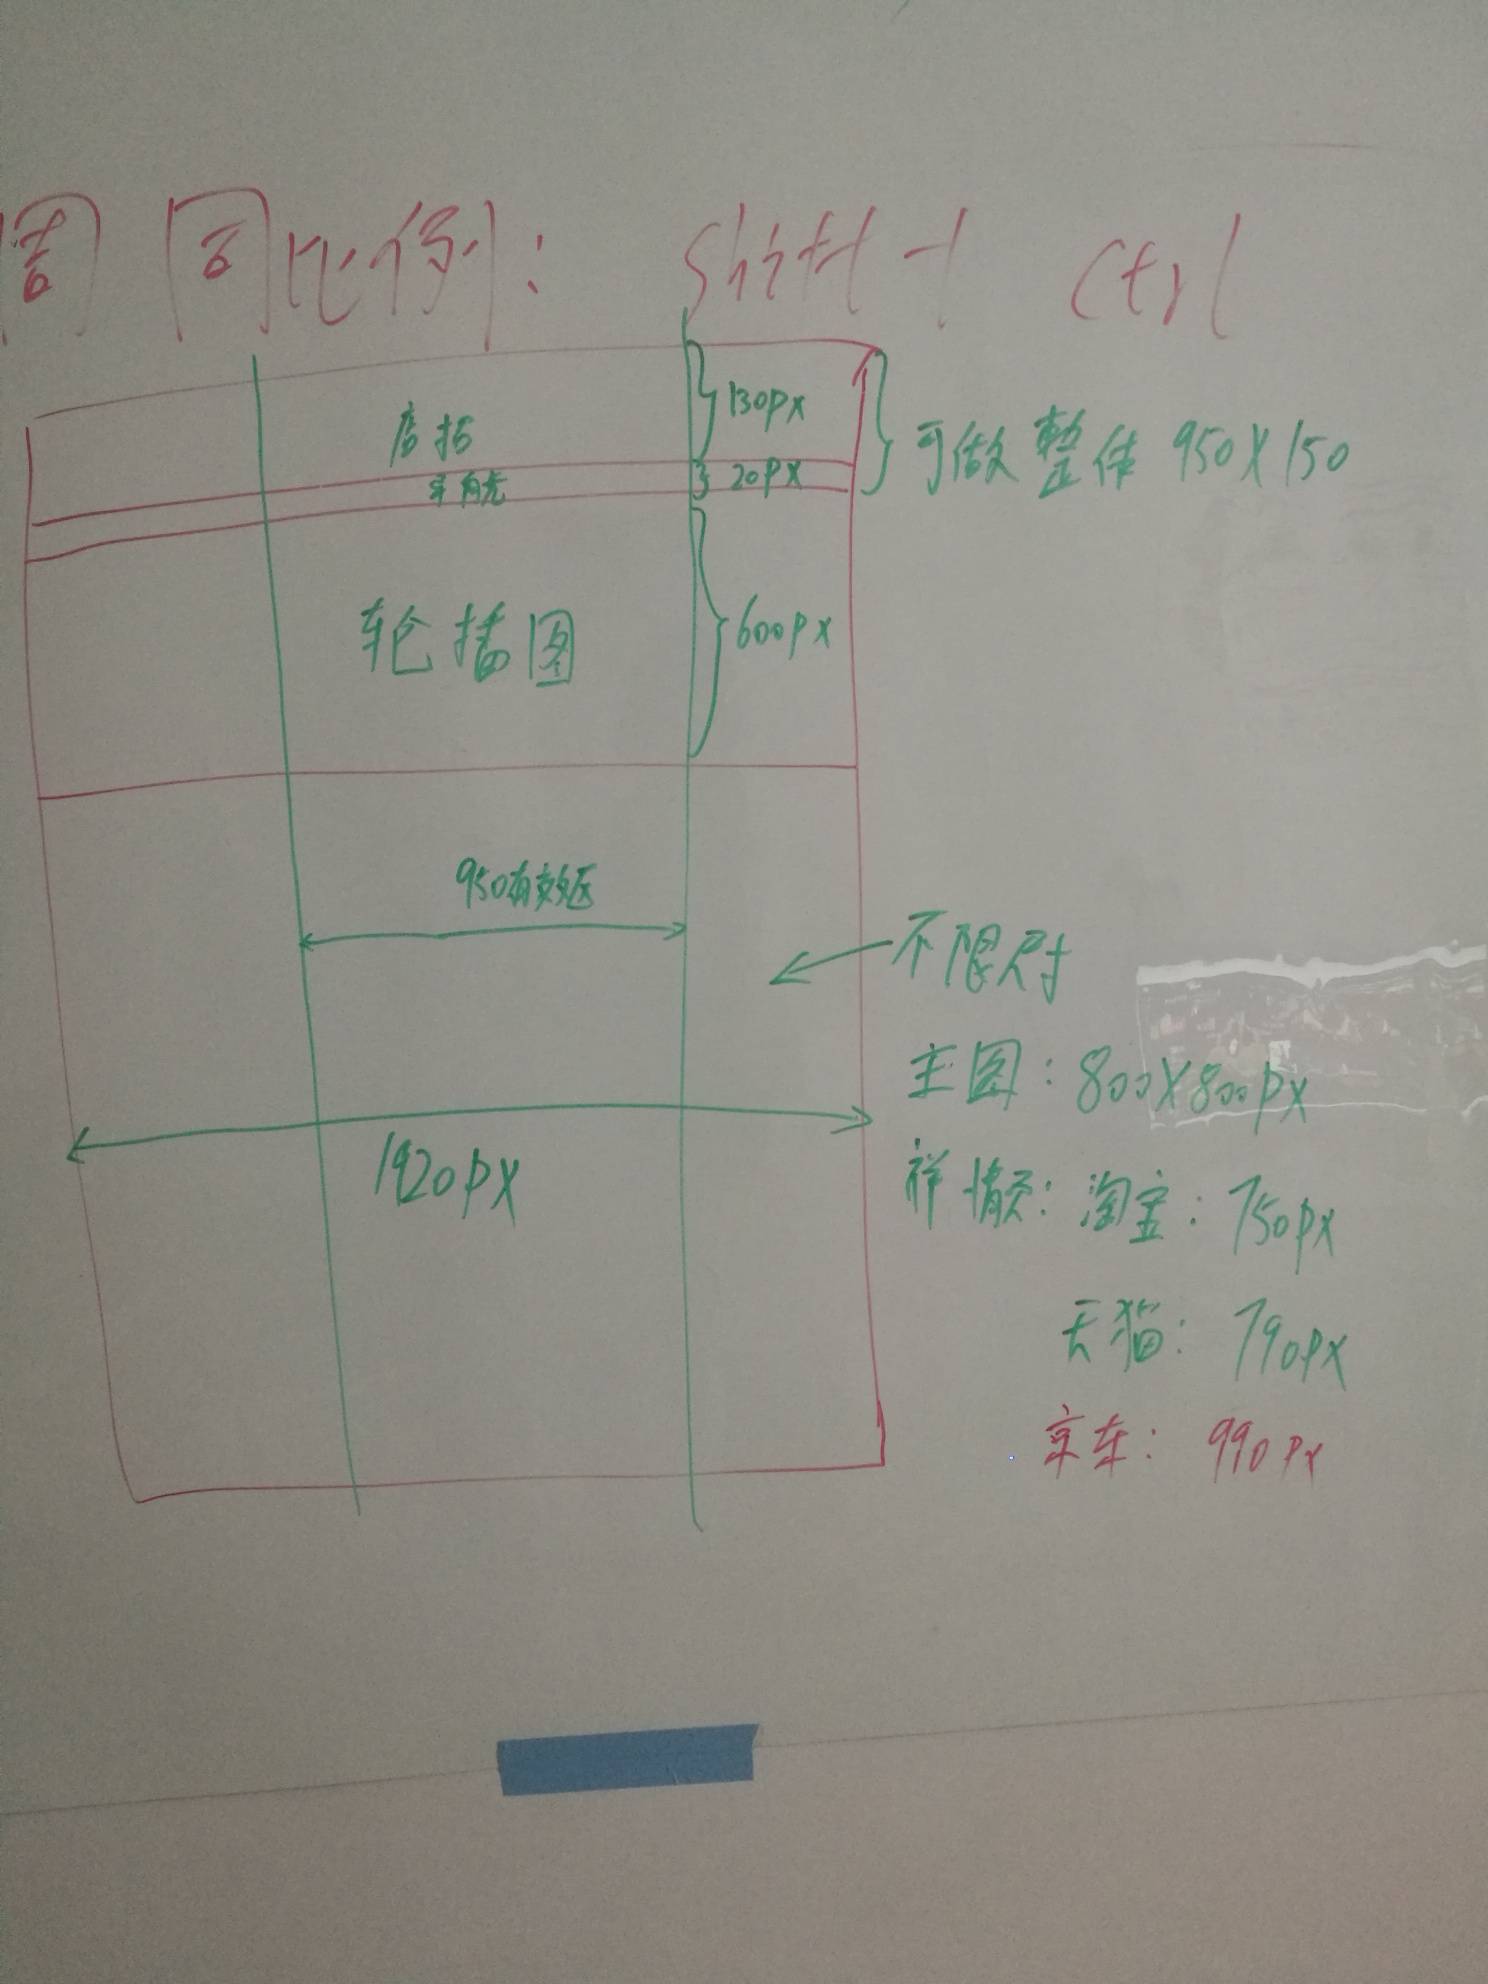 周 同比例: Shift + Ctrl
店招 130px
20px
可做整体 950X150
轮播图 600px
950有效区
不限尺寸
主图: 800X800px
1920px
祥情页: 淘宝: 750px
天猫: 790px
京东: 990px